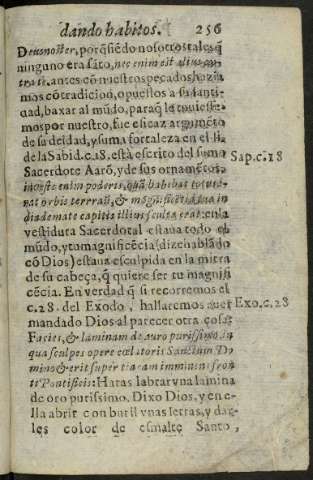 dando habitos. 256
Deus noster, porq̃ siẽdo nosotros tales, q̃
ninguno era sãto, nec enim est alius, ex-
tra te. antes cõ nuestros pecados haziа
mos cõtradicion, opuestos a su santi-
dad, baxar al mũdo, paraq̃ le tuuiesse-
mos por nuestro, fue eficaz argumẽto
de su deidad, y suma fortaleza en el li.
de la Sabid. c. 18. està escrito del sumo Sap. c. 18
Sacerdote Aarõ, y de sus ornamẽtos.
in veste enim poderis, quã habebat totus e-
rat orbis terrarũ, & magnificẽtia tua in
diademate capitis illius sculpta erat: en la
vestidura Sacerdotal estaua todo el
mũdo, y tu magnificẽcia (dize hablãdo
cõ Dios) estaua esculpida en la mitra
de su cabeça, q̃ quiere ser tu magnifi
cẽcia. En verdad q̃ si recorremos el
c. 28. del Exodo, hallaremos auer Exo. c. 28
mandado Dios al parecer otra cosa:
Facies, & laminam de auro purissimo, in
qua sculpes opere cœlatoris Sanctum Do
mino & erit super tiaram imminens fron
ti Pontificis: Haras labrar vna lamina
de oro purissimo. Dixo Dios, y en e-
lla abrir con buril vnas letras, y dar-
les color de esmalte Santo,